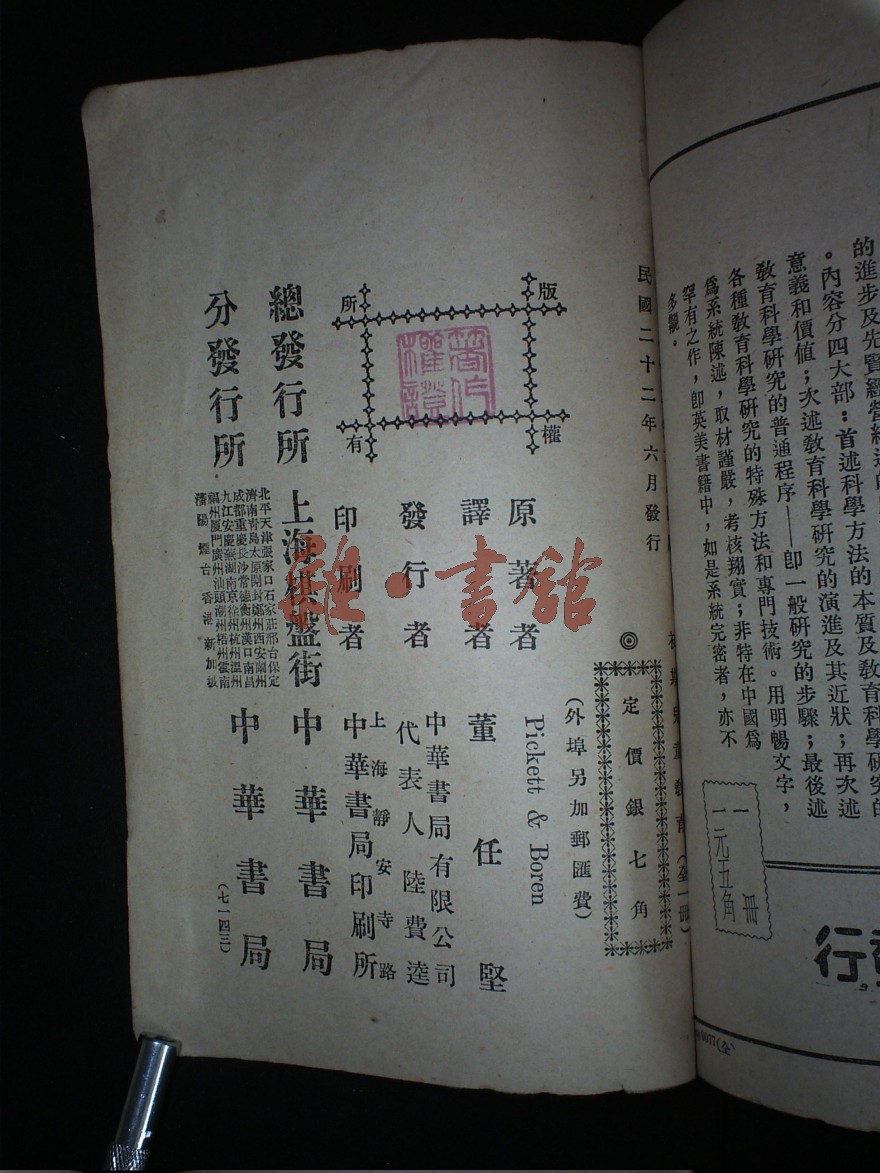 的進步及先賢經營締造的
。內容分四大部：首述科學方法的本質及教育科學研究的
意義和價値；次述教育科學研究的演進及其近狀；再次述
教育科學研究的普通程序——卽一般研究的步驟；最後述
各種教育科學研究的特殊方法和專門技術。用明暢文字，
爲系統陳述，取材謹嚴，考核翔實；非特在中國爲
罕有之作，卽英美書籍中，如是系統完密者，亦不
多覯。
一冊
一元五角
行
民國二十二年六月發行
童教育（全一冊）
◎
定價銀七角
（外埠另加郵匯費）
原著者 Pickett & Boren
譯者 董任堅
發行者 中華書局有限公司
代表人 陸費逵
印刷者 上海靜安寺路
中華書局印刷所
總發行所 上海棋盤街 中華書局
分發行所 中華書局
北平天津張家口石家莊邢台保定
濟南靑島太原開封鄭州西安蘭州
成都重慶長沙常德衡州漢口南昌
九江安慶蕪湖南京徐州杭州溫州
福州廈門廣州汕頭潮州梧州雲南
瀋陽煙台香港新加坡
（七一四三）
版權所有
著作權證
雜·書館